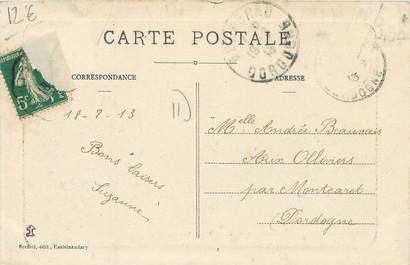 12 €
CARTE POSTALE
CORRESPONDANCE
ADRESSE
18-9-13
Bons baisers
Suzanne
Melle Andrée Beauvais
Aux Olliviers
par Montcaret
Dordogne
édit., Castelnaudary